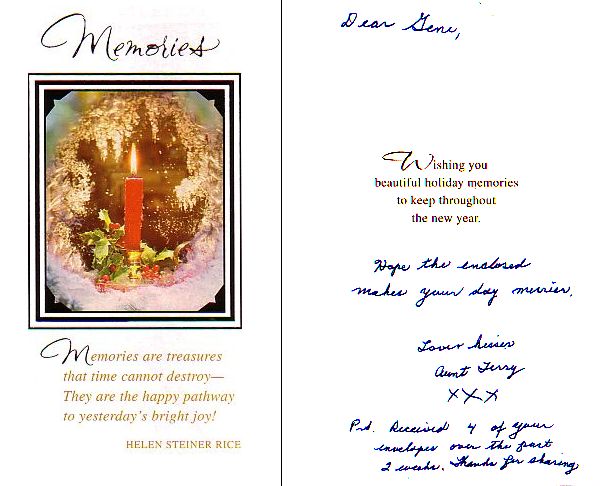 Memories
Memories are treasures
that time cannot destroy—
They are the happy pathway
to yesterday's bright joy!
HELEN STEINER RICE
Dear Gene,
Wishing you
beautiful holiday memories
to keep throughout
the new year.
Hope the enclosed
makes your day merrier.
Love & kisses
Aunt Terry
XXX
P.S. Received 4 of your
envelopes over the past
2 weeks. Thanks for sharing